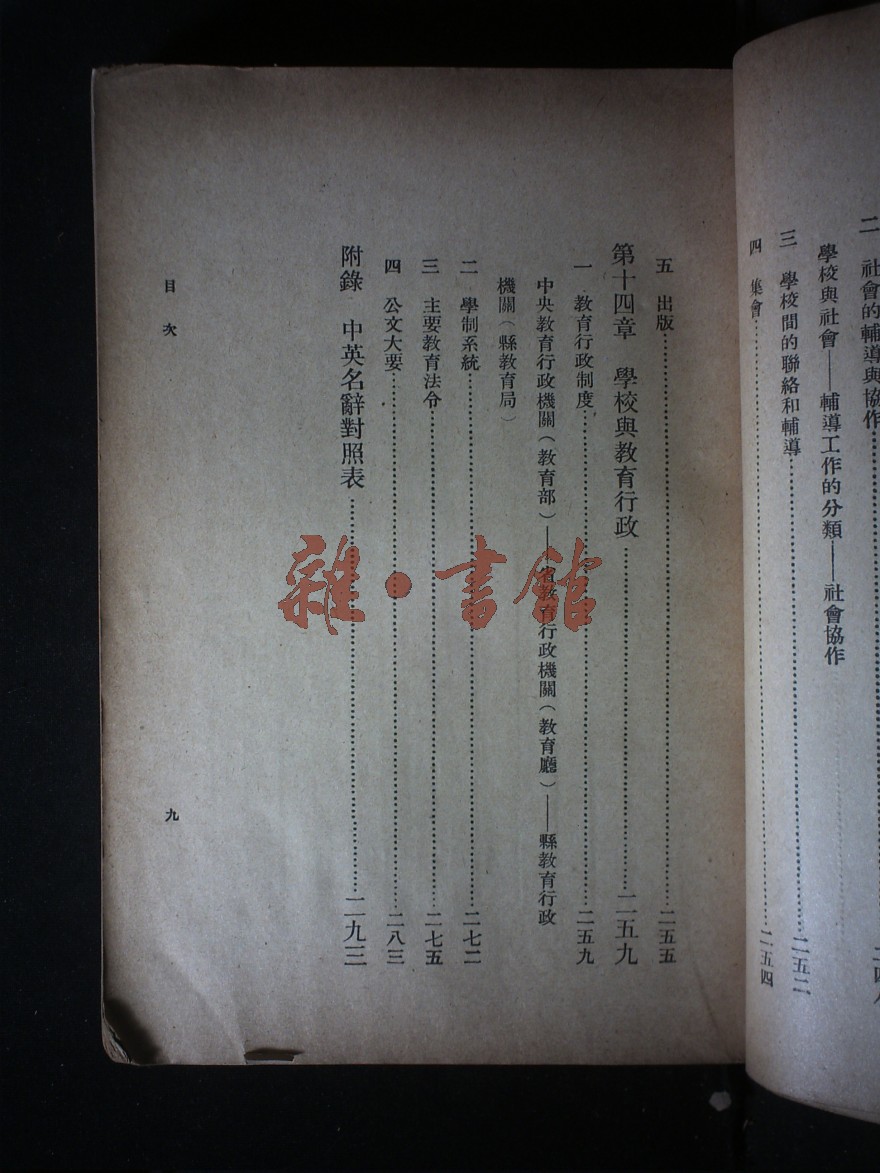 二 社會的輔導與協作
學校與社會——輔導工作的分類——社會協作
三 學校間的聯絡和輔導……二五二
四 集會……二五四
五 出版……二五五
第十四章 學校與教育行政……二五九
一 教育行政制度……二五九
中央教育行政機關（教育部）——省教育行政機關（教育廳）——縣教育行政
機關（縣教育局）
二 學制系統……二七二
三 主要教育法令……二七五
四 公文大要……二八三
附錄 中英名辭對照表……二九三
目次
九
雜·書館